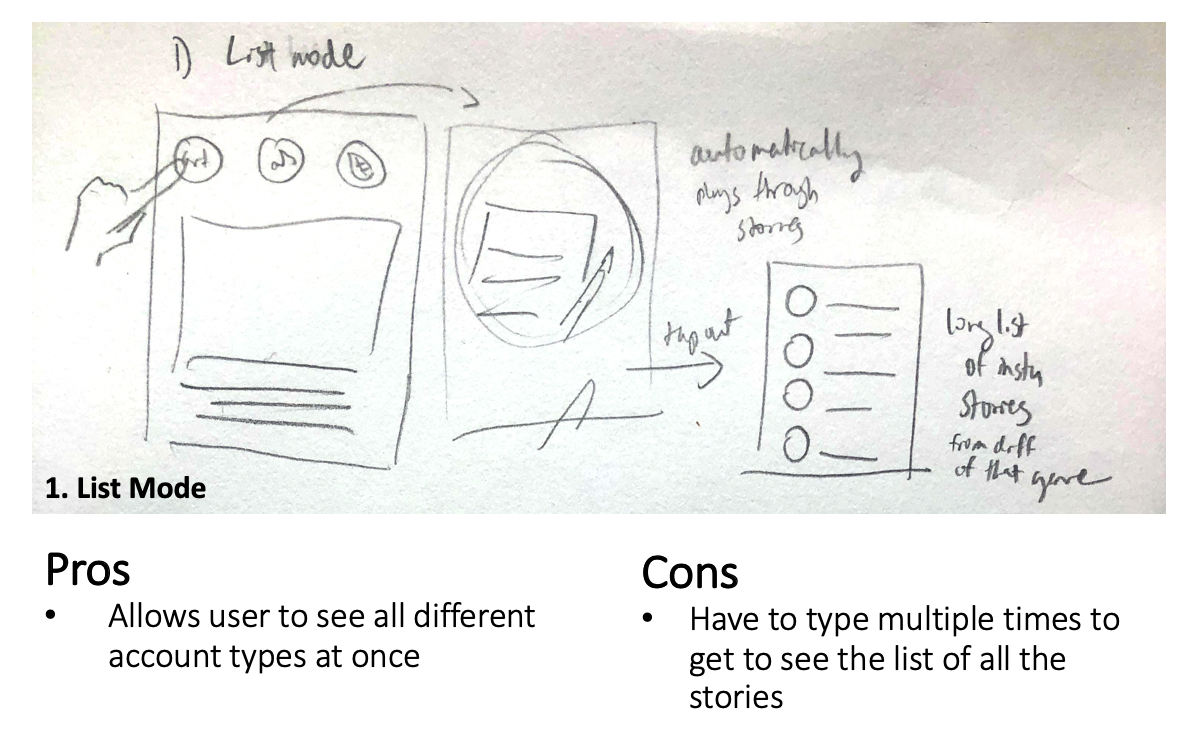 1) List mode
art
automatically
plays through
stories
tap out
long list
of insta
stories
from diff
of that genre
1. List Mode
Pros
• Allows user to see all different
account types at once
Cons
• Have to type multiple times to
get to see the list of all the
stories